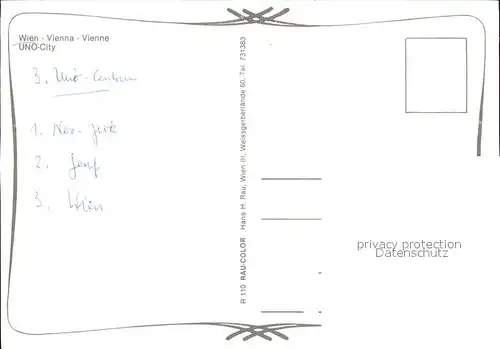 Wien - Vienna - Vienne
UNO-City
3. Uno-Centrum
1. New-York
2. Genf
3. Wien
R 110 RAU-COLOR Hans H. Rau, Wien III, Weissgerberlände 60, Tel. 731383
privacy protection
Datenschutz